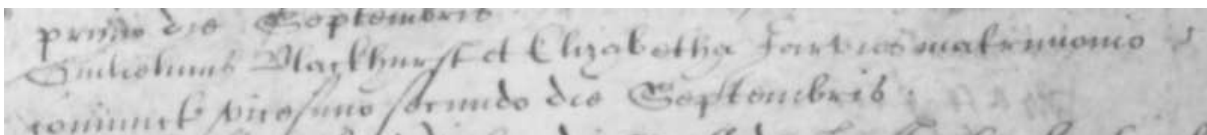 primo die Septembris
Guilielmus Blackhurst et Elizabetha Jarvies matrimonio
coniunct vicesimo secundo die Septembris